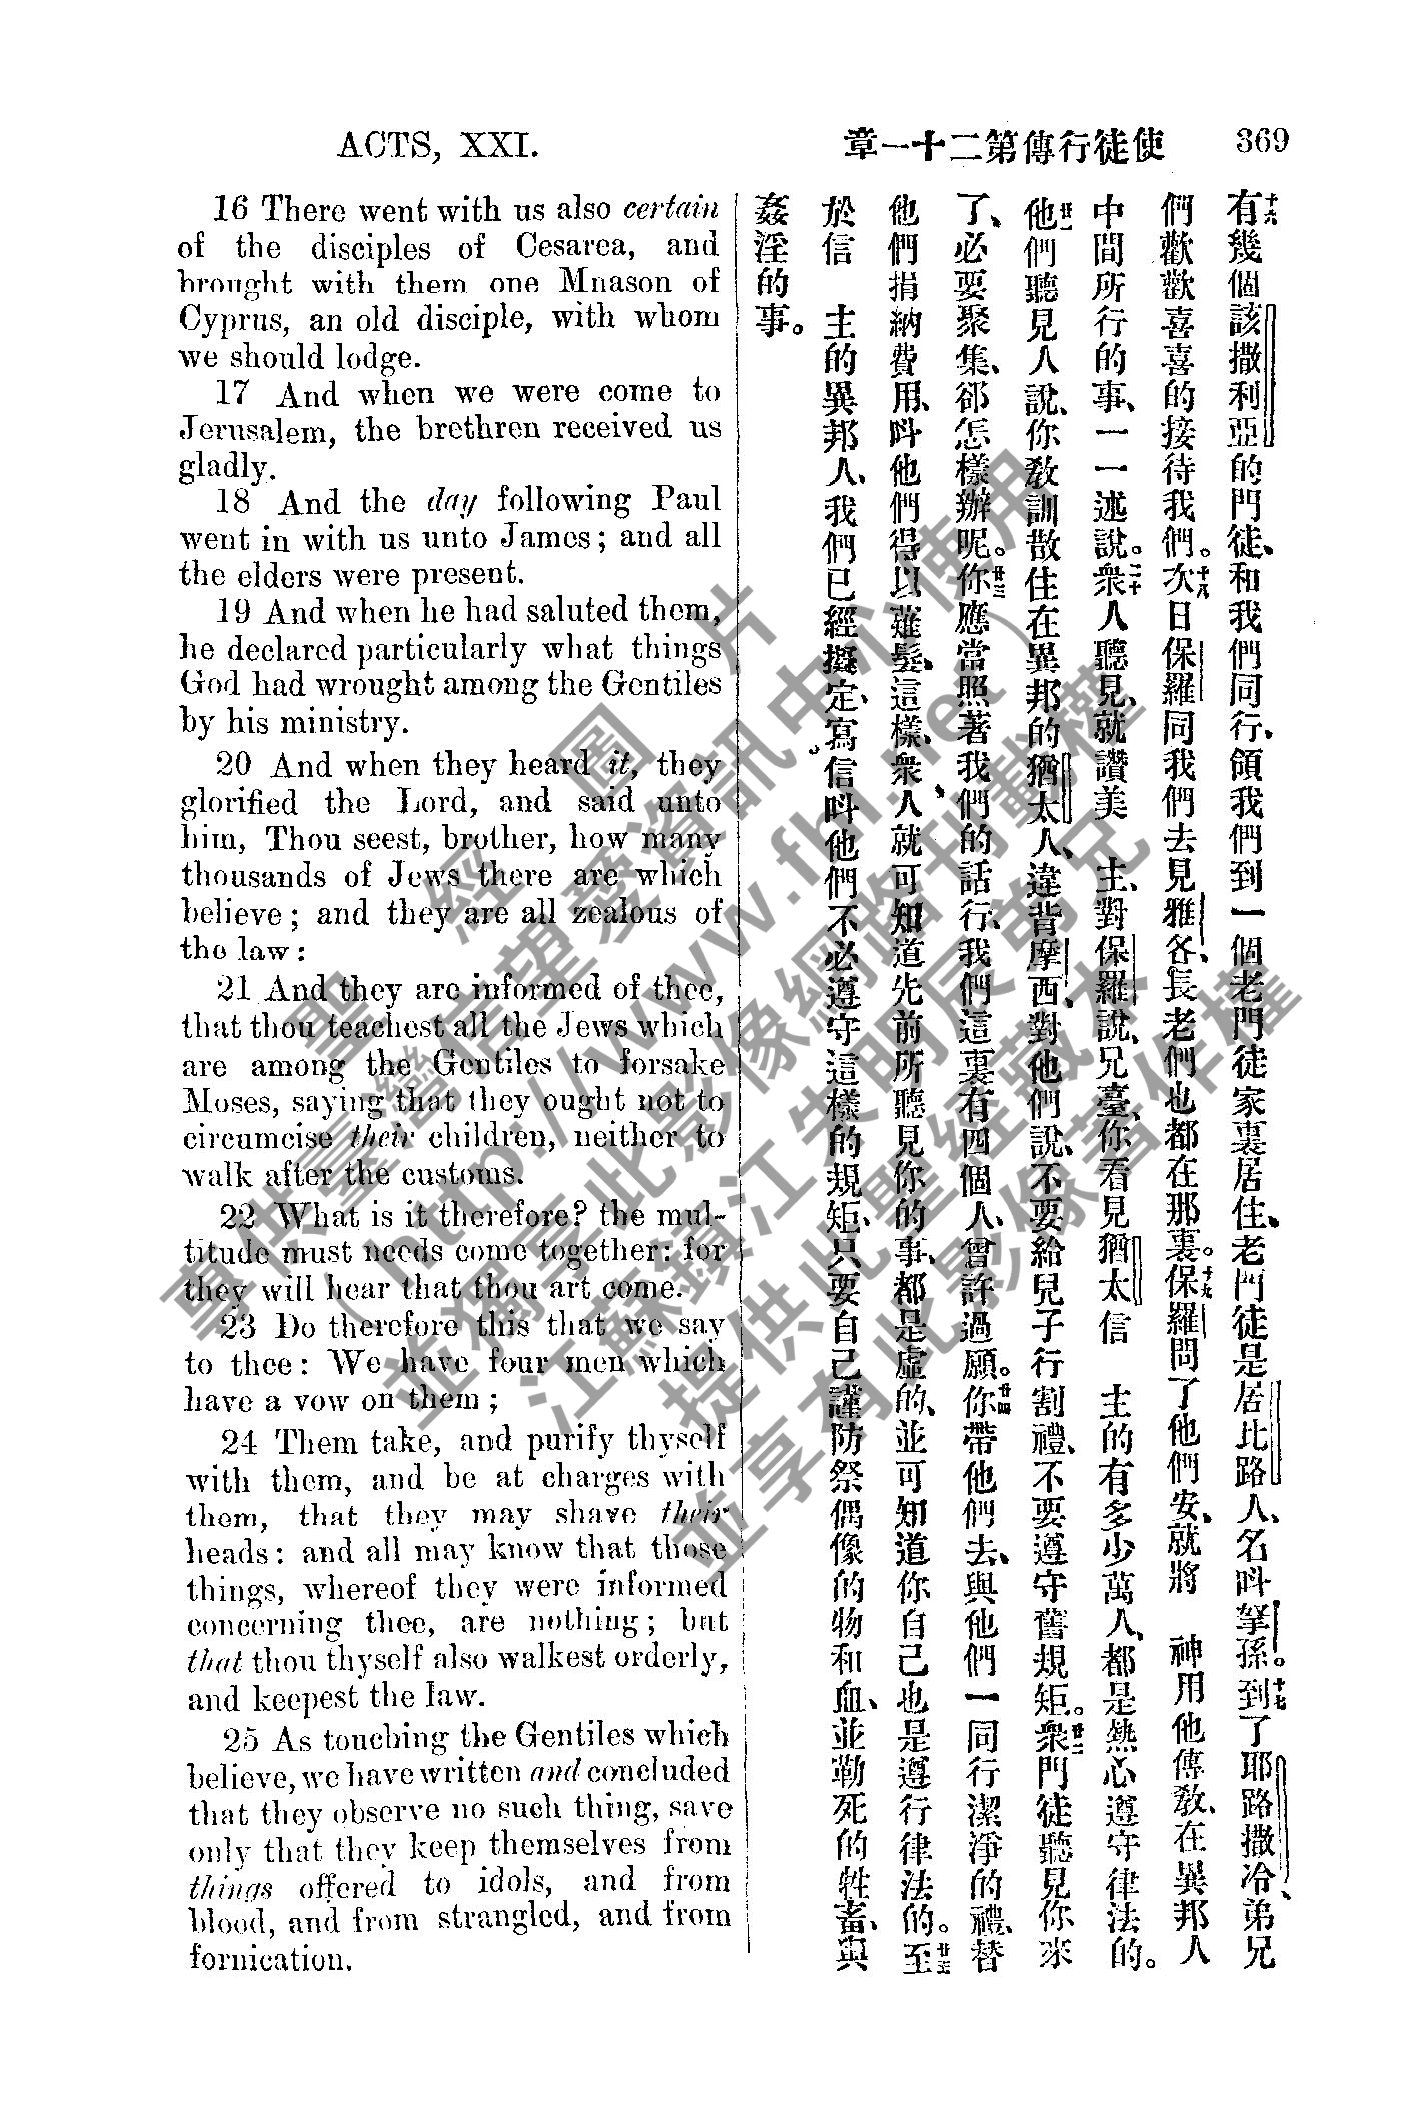 ACTS, XXI.
使徒行傳第二十一章
369
16 There went with us also certain
of the disciples of Cesarea, and
brought with them one Mnason of
Cyprus, an old disciple, with whom
we should lodge.
17 And when we were come to
Jerusalem, the brethren received us
gladly.
18 And the day following Paul
went in with us unto James; and all
the elders were present.
19 And when he had saluted them,
he declared particularly what things
God had wrought among the Gentiles
by his ministry.
20 And when they heard it, they
glorified the Lord, and said unto
him, Thou seest, brother, how many
thousands of Jews there are which
believe; and they are all zealous of
the law:
21 And they are informed of thee,
that thou teachest all the Jews which
are among the Gentiles to forsake
Moses, saying that they ought not to
circumcise their children, neither to
walk after the customs.
22 What is it therefore? the mul-
titude must needs come together: for
they will hear that thou art come.
23 Do therefore this that we say
to thee: We have four men which
have a vow on them;
24 Them take, and purify thyself
with them, and be at charges with
them, that they may shave their
heads: and all may know that those
things, whereof they were informed
concerning thee, are nothing; but
that thou thyself also walkest orderly,
and keepest the law.
25 As touching the Gentiles which
believe, we have written and concluded
that they observe no such thing, save
only that they keep themselves from
things offered to idols, and from
blood, and from strangled, and from
fornication.
十六有幾個該撒利亞的門徒、和我們同行、領我們到一個老門徒家裏居住、老門徒是居比路人、名呌拏孫。十七到了耶路撒冷、弟兄
們歡歡喜喜的接待我們。十八次日保羅同我們去見雅各、長老們也都在那裏。十九保羅問了他們安、就將 神用他傳敎、在異邦人
中間所行的事、一一述說。二十衆人聽見、就讚美 主、對保羅說、兄臺、你看見猶太信 主的有多少萬人、都是熱心遵守律法的。
廿一他們聽見人說、你敎訓散住在異邦的猶太人、違背摩西、對他們說、不要給兒子行割禮、不要遵守舊規矩。廿二衆門徒聽見你來
了、必要聚集、郤怎樣辦呢。廿三你應當照著我們的話行、我們這裏有四個人、曾許過願。廿四你帶他們去、與他們一同行潔淨的禮、替
他們捐納費用、呌他們得以薙髮、這樣、衆人、就可知道先前所聽見你的事、都是虛的、並可知道你自己也是遵行律法的。至
於信 主的異邦人、我們已經擬定、寫信呌他們不必遵守這樣的規矩、只要自己謹防祭偶像的物和血、並勒死的牲畜、與
姦淫的事。